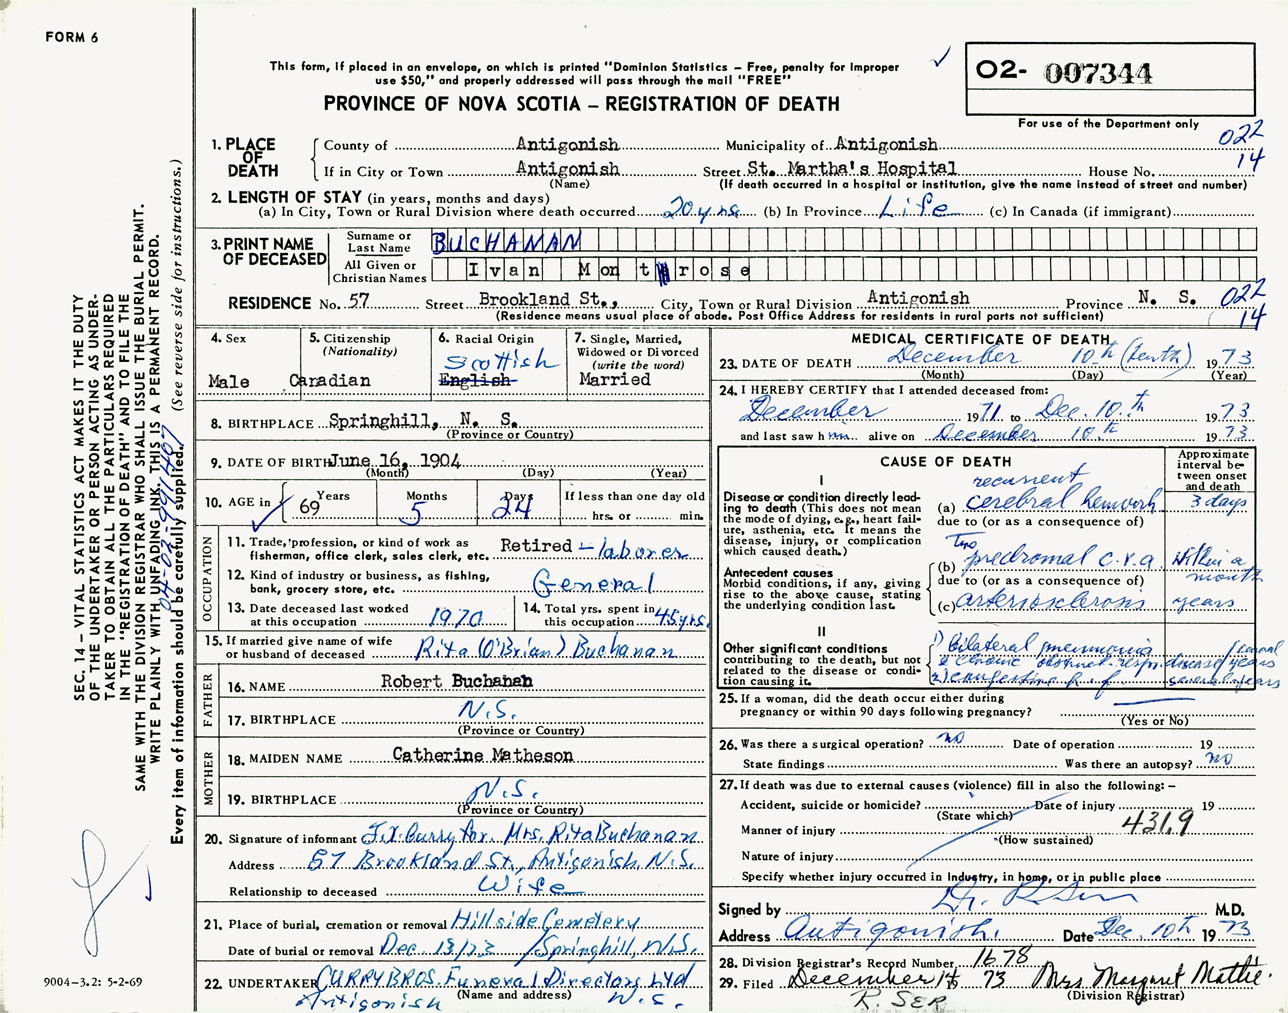 FORM 6
This form, if placed in an envelope, on which is printed "Dominion Statistics – Free, penalty for improper
use $50," and properly addressed will pass through the mail "FREE"
PROVINCE OF NOVA SCOTIA – REGISTRATION OF DEATH
O2- 007344
For use of the Department only
022
14
1. PLACE OF DEATH
County of Antigonish Municipality of Antigonish
If in City or Town Antigonish Street St. Martha's Hospital House No.
(Name) (If death occurred in a hospital or institution, give the name instead of street and number)
2. LENGTH OF STAY (in years, months and days)
(a) In City, Town or Rural Division where death occurred 20 yrs (b) In Province Life (c) In Canada (if immigrant)
3. PRINT NAME OF DECEASED
Surname or Last Name BUCHANAN
All Given or Christian Names Ivan Montrose
RESIDENCE No. 57 Street Brookland St., City, Town or Rural Division Antigonish Province N. S.
022
14
(Residence means usual place of abode. Post Office Address for residents in rural parts not sufficient)
4. Sex
Male
5. Citizenship
(Nationality)
Canadian
6. Racial Origin
Scottish
English
7. Single, Married,
Widowed or Divorced
(write the word)
Married
8. BIRTHPLACE Springhill, N. S.
(Province or Country)
9. DATE OF BIRTH June 16, 1904
(Month) (Day) (Year)
10. AGE in
Years Months Days If less than one day old
69 5 24 hrs. or min.
OCCUPATION
11. Trade, profession, or kind of work as
fisherman, office clerk, sales clerk, etc. Retired – laborer
12. Kind of industry or business, as fishing,
bank, grocery store, etc. General
13. Date deceased last worked
at this occupation 1970
14. Total yrs. spent in
this occupation 45 yrs.
15. If married give name of wife
or husband of deceased Rita (O'Brian) Buchanan
FATHER
16. NAME Robert Buchanan
17. BIRTHPLACE N.S.
(Province or Country)
MOTHER
18. MAIDEN NAME Catherine Matheson
19. BIRTHPLACE N.S.
(Province or Country)
20. Signature of informant J.X. Curry for Mrs. Rita Buchanan
Address 57 Brookland St., Antigonish, N.S.
Relationship to deceased Wife
21. Place of burial, cremation or removal Hillside Cemetery
Date of burial or removal Dec. 13/73 /Springhill, N.S.
22. UNDERTAKER CURRY BROS. Funeral Directors Ltd
(Name and address)
Antigonish N.S.
MEDICAL CERTIFICATE OF DEATH
23. DATE OF DEATH December 10th (tenth) 1973
(Month) (Day) (Year)
24. I HEREBY CERTIFY that I attended deceased from:
December 1971 to Dec. 10th 1973
and last saw him alive on December 10th 1973
CAUSE OF DEATH
Approximate
interval be-
tween onset
and death
I
Disease or condition directly lead-
ing to death (This does not mean
the mode of dying, e.g., heart fail-
ure, asthenia, etc. It means the
disease, injury, or complication
which caused death.)
recurrent
(a) cerebral hemorrh 3 days
due to (or as a consequence of)
Antecedent causes
Morbid conditions, if any, giving
rise to the above cause, stating
the underlying condition last.
Two
(b) predromal c.v.a within a
month
due to (or as a consequence of)
(c) arteriosclerosis years
II
Other significant conditions
contributing to the death, but not
related to the disease or condi-
tion causing it.
1) bilateral pneumonia
chronic obstruct. resp. disease/years
congestive h.f several years
25. If a woman, did the death occur either during
pregnancy or within 90 days following pregnancy?
(Yes or No)
26. Was there a surgical operation? no Date of operation 19
State findings Was there an autopsy? no
27. If death was due to external causes (violence) fill in also the following: –
Accident, suicide or homicide? Date of injury 19
(State which)
Manner of injury 431.9
(How sustained)
Nature of injury
Specify whether injury occurred in Industry, in home, or in public place
Signed by Dr. M.D.
Address Antigonish. Date Dec. 10th 1973
28. Division Registrar's Record Number 1678
29. Filed December 14 73 Mrs Margaret Mattie
(Division Registrar)
R. SER
SEC. 14 – VITAL STATISTICS ACT MAKES IT THE DUTY
OF THE UNDERTAKER OR PERSON ACTING AS UNDER-
TAKER TO OBTAIN ALL THE PARTICULARS REQUIRED
IN THE "REGISTRATION OF DEATH" AND TO FILE THE
SAME WITH THE DIVISION REGISTRAR WHO SHALL ISSUE THE BURIAL PERMIT.
WRITE PLAINLY WITH UNFADING INK. THIS IS A PERMANENT RECORD.
Every item of information should be carefully supplied. (See reverse side for instructions.)
9004-3.2: 5-2-69